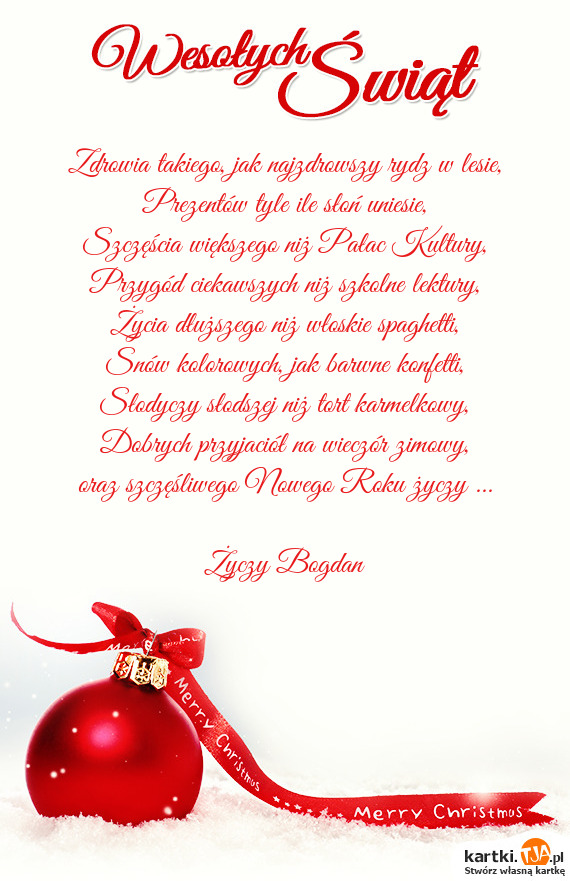 Wesołych Świąt
Zdrowia takiego, jak najzdrowszy rydz w lesie,
Prezentów tyle ile słoń uniesie,
Szczęścia większego niż Pałac Kultury,
Przygód ciekawszych niż szkolne lektury,
Życia dłuższego niż włoskie spaghetti,
Snów kolorowych, jak barwne konfetti,
Słodyczy słodszej niż tort karmelkowy,
Dobrych przyjaciół na wieczór zimowy,
oraz szczęśliwego Nowego Roku życzy ...
Życzy Bogdan
Merry Christmas
Merry Christmas
kartki.TJA.pl
Stwórz własną kartkę